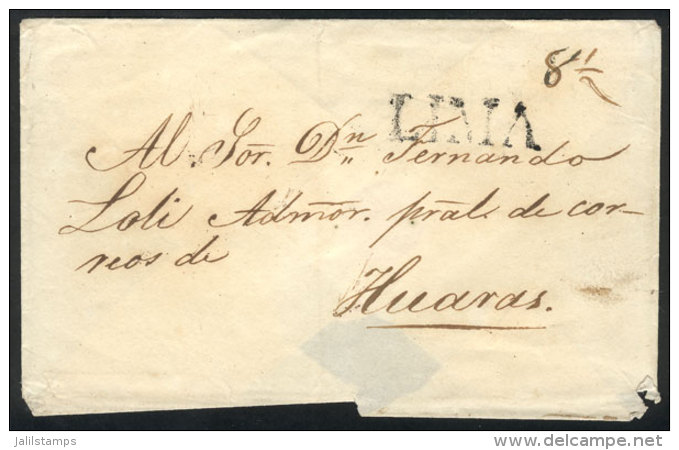 8 1/2
LIMA
Al Sor. Dn. Fernando
Loli Admor. pral. de cor-
reos de
Huaras.
jalilstamps
delcampe.net